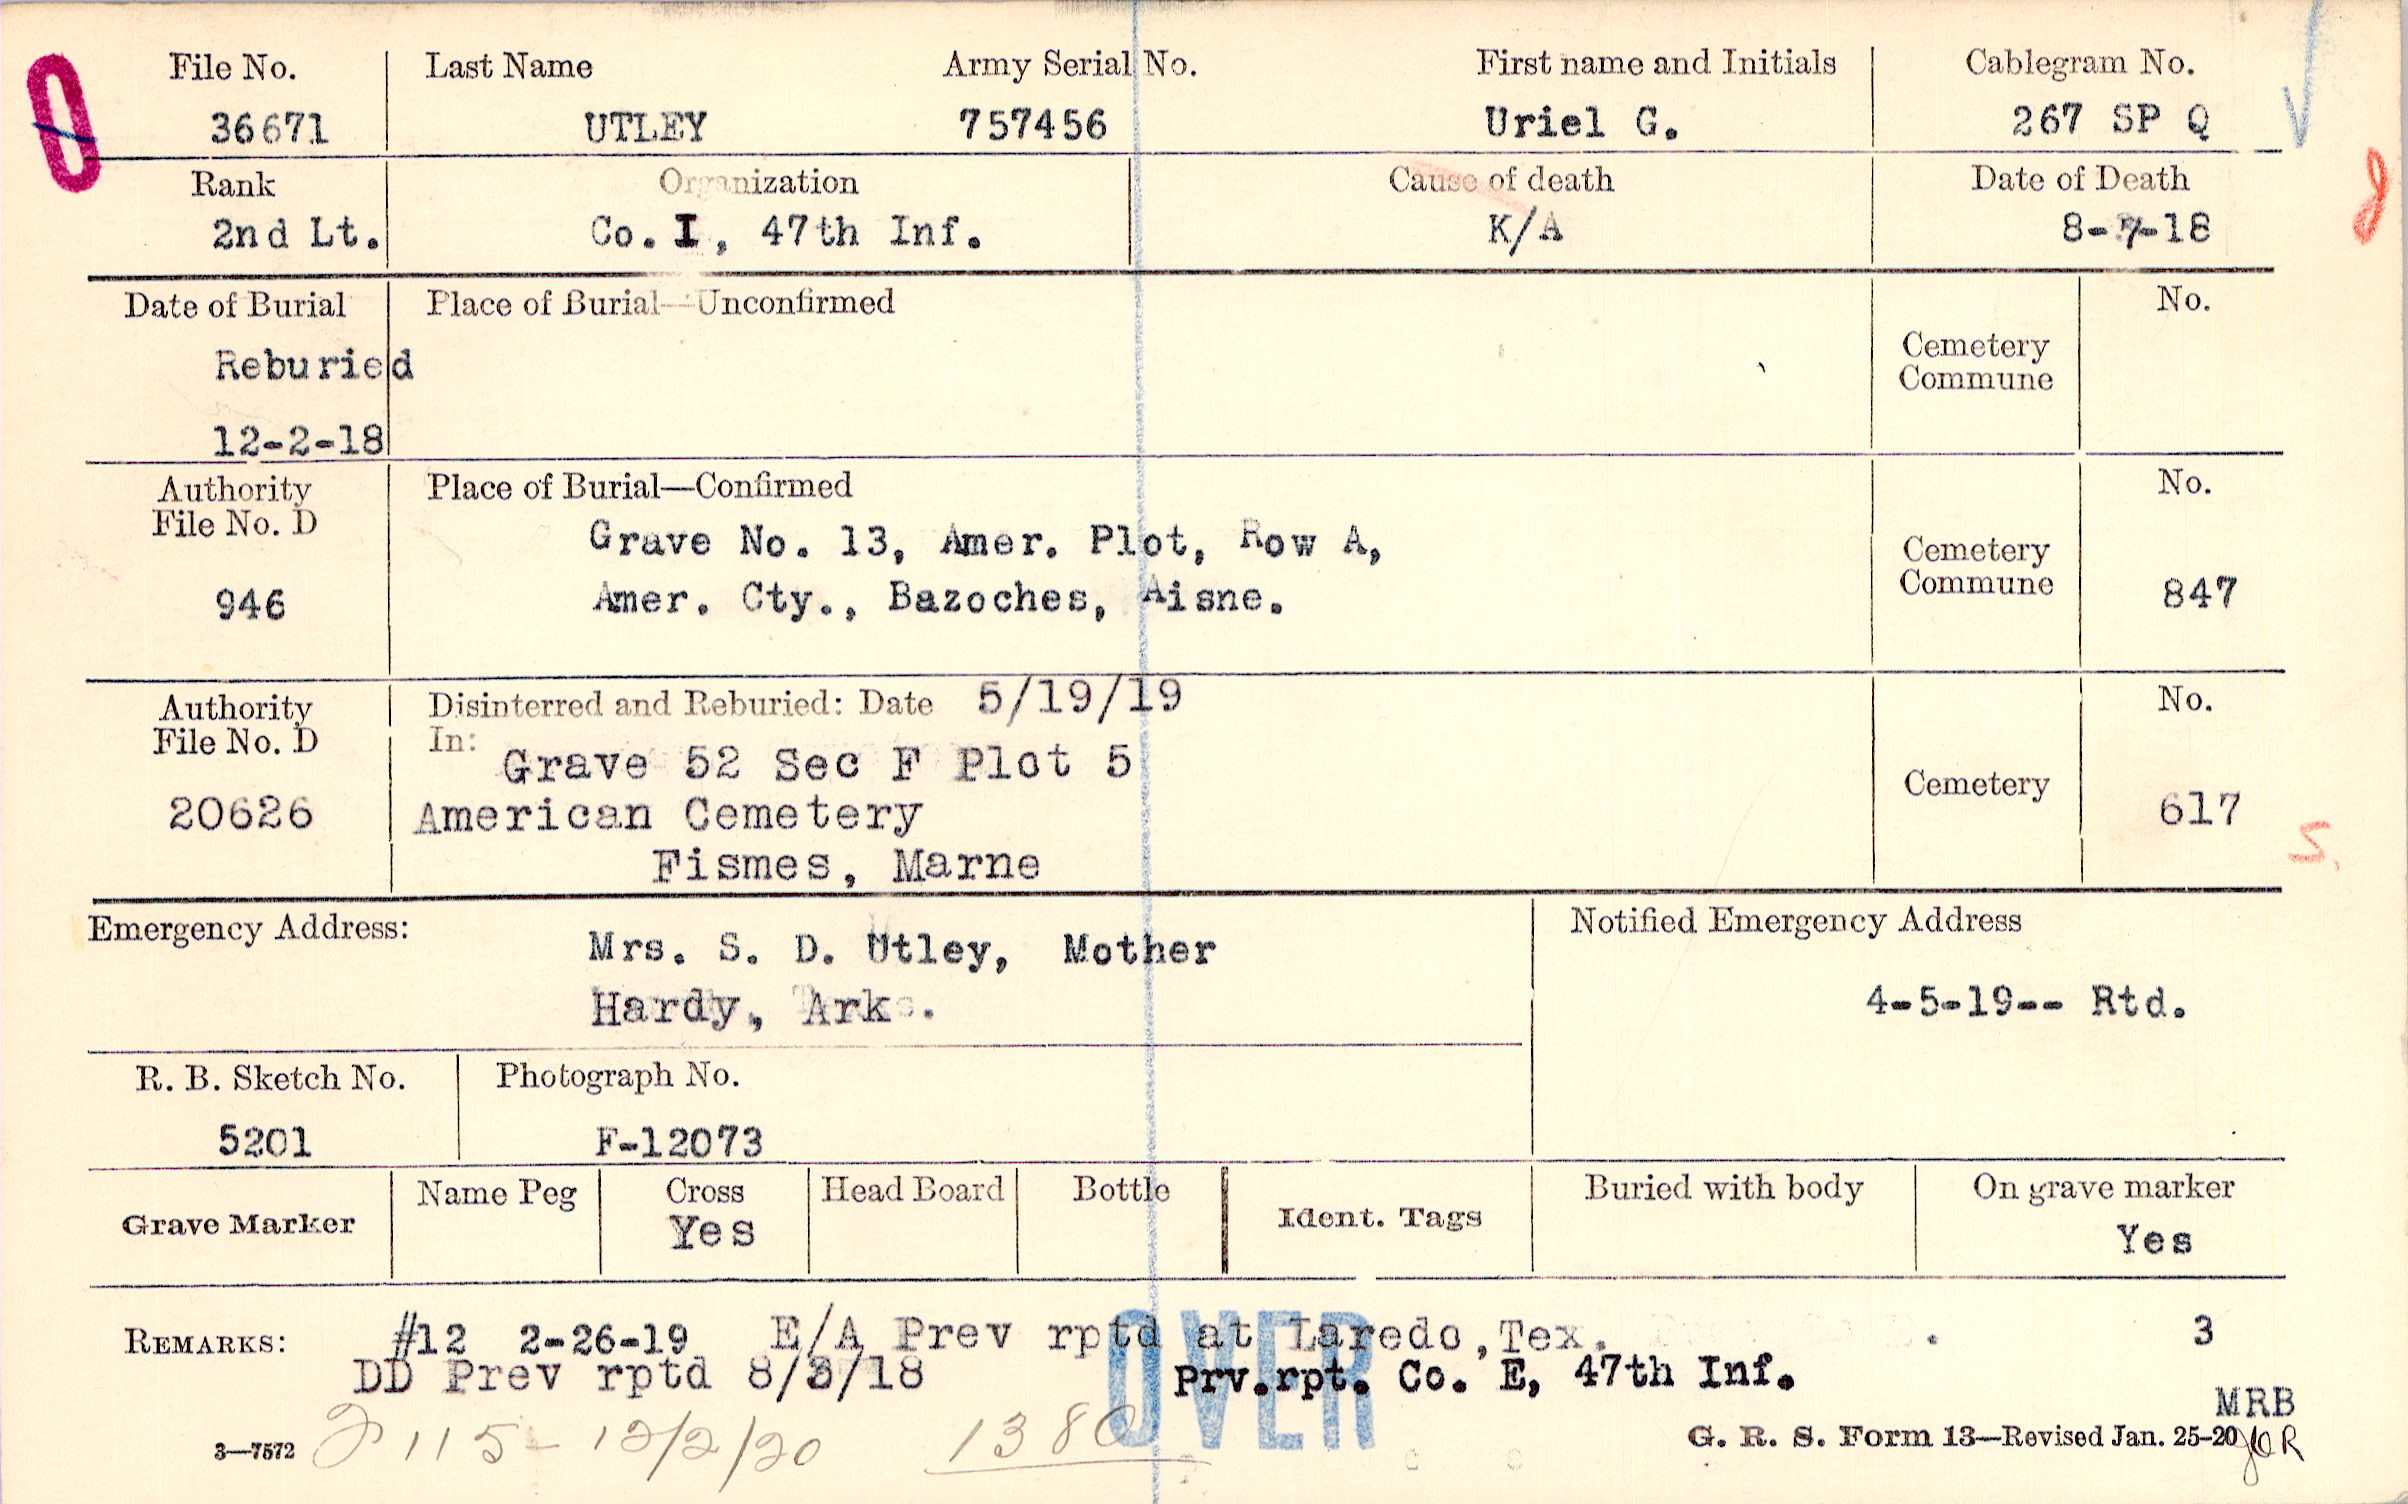 File No. Last Name Army Serial No. First name and Initials Cablegram No.
36671 UTLEY 757456 Uriel G. 267 SP Q
Rank Organization Cause of death Date of Death
2nd Lt. Co. I, 47th Inf. K/A 8-7-18
Date of Burial Place of Burial—Unconfirmed No.
Reburied
12-2-18
Cemetery
Commune
Authority Place of Burial—Confirmed No.
File No. D
946
Grave No. 13, Amer. Plot, Row A,
Amer. Cty., Bazoches, Aisne.
Cemetery
Commune
847
Authority Disinterred and Reburied: Date 5/19/19 No.
File No. D In:
20626
Grave 52 Sec F Plot 5
American Cemetery
Fismes, Marne
Cemetery
617
5
Emergency Address: Notified Emergency Address
Mrs. S. D. Utley, Mother
Hardy, Ark.
4-5-19-- Rtd.
R. B. Sketch No. Photograph No.
5201 F-12073
Grave Marker Name Peg Cross Head Board Bottle Ident. Tags Buried with body On grave marker
Yes Yes
REMARKS: #12 2-26-19 E/A Prev rptd at Laredo,Tex. 3
DD Prev rptd 8/8/18 Prv.rpt. Co. E, 47th Inf.
OVER
MRB
115 - 12/2/20 1380
3—7572 G. R. S. Form 13—Revised Jan. 25-20